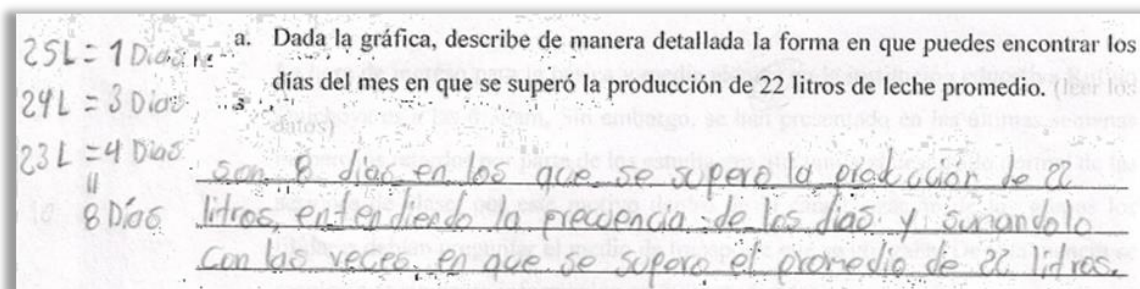 25L = 1 Dia
24L = 3 Dias
23L = 4 Dias
=
8 Días
a. Dada la gráfica, describe de manera detallada la forma en que puedes encontrar los
días del mes en que se superó la producción de 22 litros de leche promedio. (leer los
datos)
son 8 dias en los que se supero la producción de 22
litros, entendiendo la frecuencia de los dias y sumandolo
con las veces en que se supero el promedio de 22 litros.